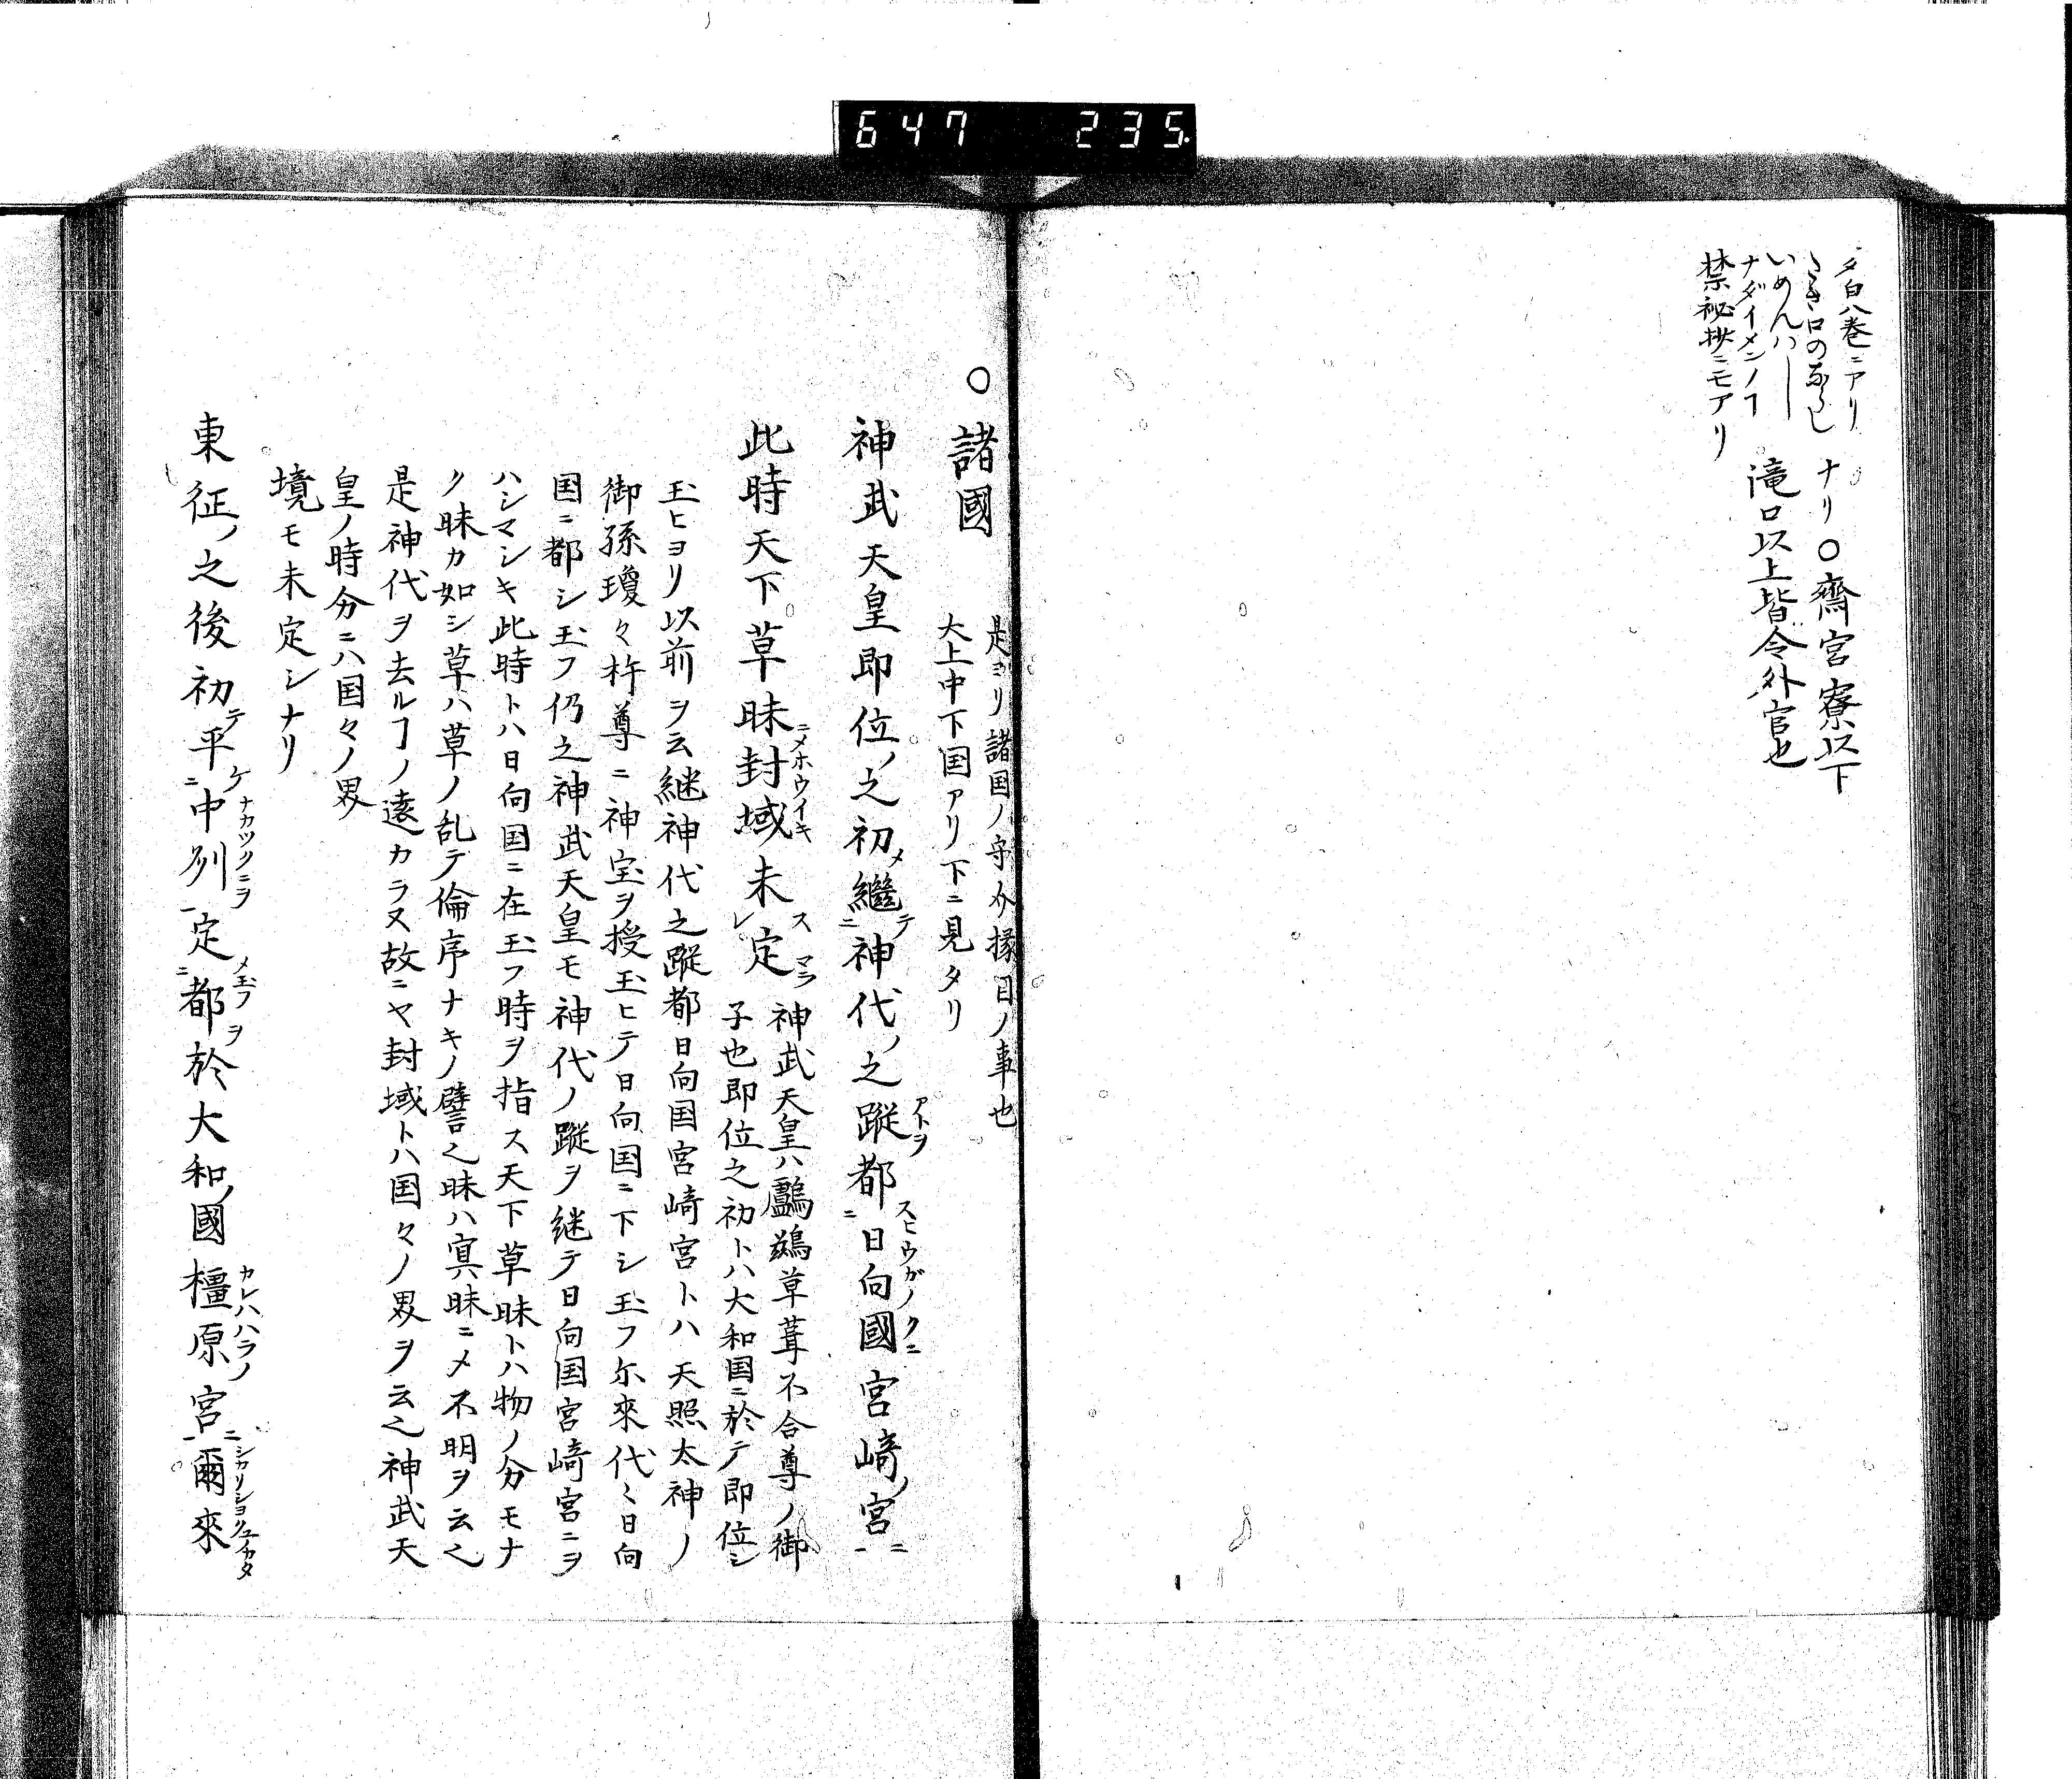 647 235
タ白八巻ニアリ
いめんハ
ナダイメンノヿ
禁秘抄ニモアリ
ナリ〇齋宮寮以下
滝口以上皆令外官也
〇諸國
是ヨリ諸国ノ守介掾目ノ事也
大上中下国アリ下ニ見タリ
神武天皇即位ノ之初メ繼テ二神代ノ之蹤アトヲ都二スヒウガノクニ日向國宮崎ノ宮ニ一
此時天下草昧ニメ封域ホウイキ未スレ定マラ
神武天皇ハ鸕鷀草葺不合尊ノ御
子也即位之初トハ大和国ニ於テ即位シ
玉ヒヨリ以前ヲ云継神代之蹤都日向国宮崎宮トハ天照太神ノ
御孫瓊々杵尊ニ神宝ヲ授玉ヒテ日向国ニ下シ玉フ尓來代〻日向
国ニ都シ玉フ仍之神武天皇モ神代ノ蹤ヲ継テ日向国宮崎宮ニヲ
ハシマシキ此時トハ日向国ニ在玉フ時ヲ指ス天下草昧トハ物ノ分モナ
ク昧カ如シ草ハ草ノ乱テ倫序ナキノ譬之昧ハ冥昧ニメ不明ヲ云之
是神代ヲ去ルヿノ遠カラヌ故ニヤ封域トハ国々ノ界ヲ云之神武天
皇ノ時分ニハ国々ノ界
境モ未定シナリ
東征ノ之後初テ平ケ二中列ナカツクニヲ一定メ玉フ二都ヲ於大和ノ國橿原カシハハラノ宮ニ一爾來シカリシヨリコノカタ